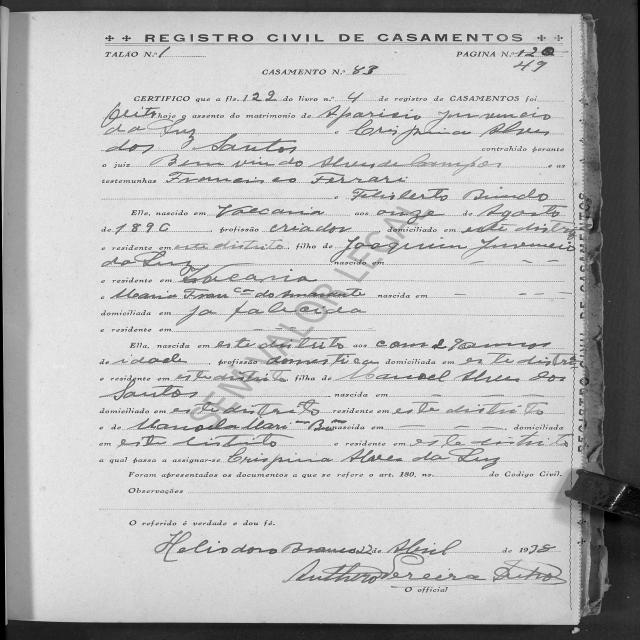 REGISTRO CIVIL DE CASAMENTOS
TALÃO N.º 1 PAGINA N.º 120
49
CASAMENTO N.º 83
CERTIFICO que a fls. 122 do livro n.º 4 de registro de CASAMENTOS foi
feito hoje o assento do matrimonio de Aparicio Juvencio
da Luz e Crispina Alves
dos Santos contrahido perante
o juiz Bemvindo Alves de Campos e as
testemunhas Francisco Ferrari
e Felisberto
Elle, nascido em Vaccaria aos onze de Agosto
de 1890, profissão criador domiciliado em este distrito
e residente em este distrito, filho de Joaquim Juvencio
da Luz nascido em — — —
e residente em Vacaria
e Maria Fran.ca do nascida em — — —
domiciliada em ja falecida
e residente em — —
Ella, nascida em este distrito aos com annos
de idade, profissão domestica domiciliada em este distrito
e residente em este distrito filha de Manoel Alves dos
Santos nascida em — — —
domiciliado em este distrito residente em este distrito
e de Manoela Mari nascida em — — — domiciliada
em este distrito e residente em este distrito
a qual passa a assignar-se Crispina Alves da Luz
Foram apresentados os documentos a que se refere o art. 180, ns. do Codigo Civil.
Observações
O referido é verdade e dou fé.
Heliodoro Branco 22 de Abril de 1938
Anthero Pereira
O official
SEM VALOR LEGAL
REGISTRO CIVIL DE CASAMENTOS